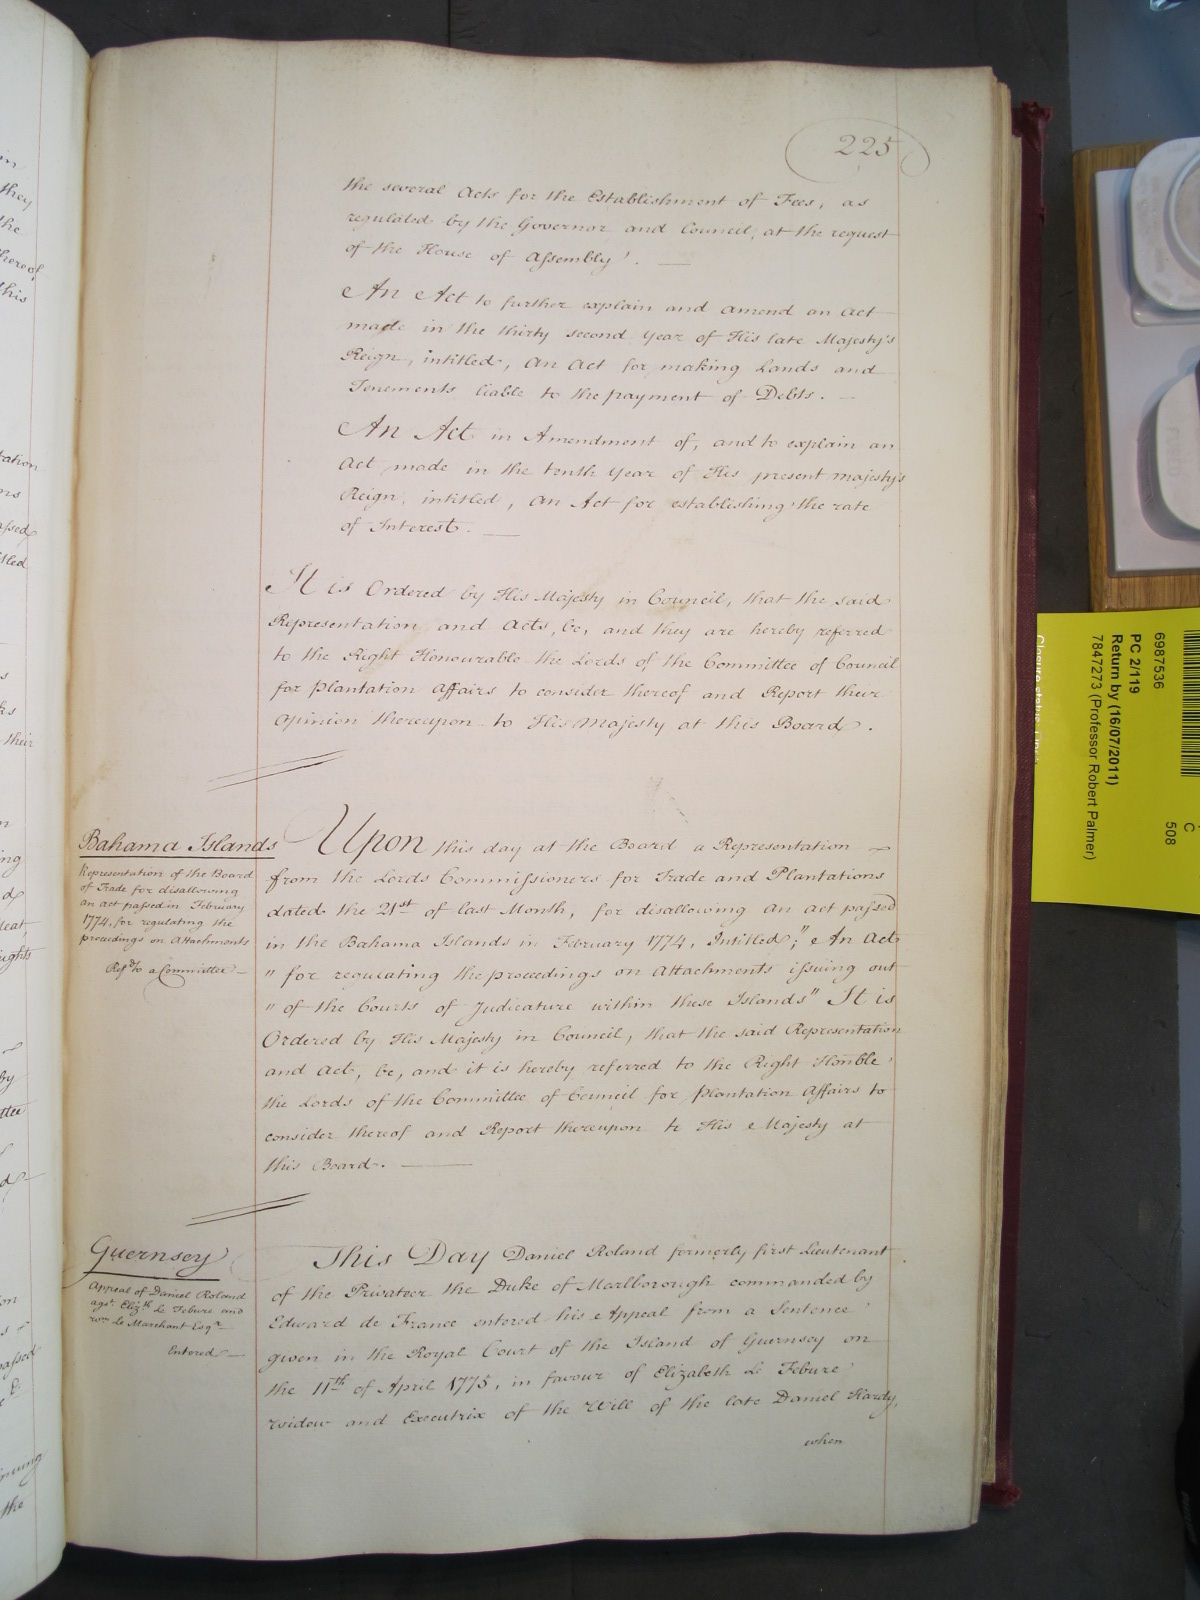 225
the several Acts for the Establishment of Fees, as
regulated by the Governor and Council, at the request
of the House of Assembly.
An Act to further explain and amend an Act
made in the thirty second Year of His late Majesty's
Reign, intitled, An Act for making Lands and
Tenements liable to the payment of Debts.
An Act in Amendment of, and to explain an
Act made in the tenth Year of His present Majesty's
Reign, intitled, An Act for establishing the rate
of Interest.
It is Ordered by His Majesty in Council, that the said
Representation and Acts, be, and they are hereby referred
to the Right Honourable the Lords of the Committee of Council
for Plantation Affairs to consider thereof and Report their
Opinion thereupon to His Majesty at this Board.
Bahama Islands
Representation of the Board
of Trade for disallowing
an Act passed in February
1774, for regulating the
proceedings on Attachments
Ref.d to a Committee
Upon this day at the Board a Representation
from the Lords Commissioners for Trade and Plantations
dated the 21st of last Month, for disallowing an Act passed
in the Bahama Islands in February 1774, Intitled; "An Act
" for regulating the proceedings on Attachments issuing out
" of the Courts of Judicature within these Islands" It is
Ordered by His Majesty in Council, that the said Representation
and Act, be, and it is hereby referred to the Right Honble
the Lords of the Committee of Council for Plantation Affairs to
consider thereof and Report thereupon to His Majesty at
this Board.
Guernsey
Appeal of Daniel Roland
agst. Elizth Le Febure and
Wm Le Marchant Esqr
Entered
This Day Daniel Roland formerly first Lieutenant
of the Privateer the Duke of Marlborough commanded by
Edward de France entered his Appeal from a Sentence
given in the Royal Court of the Island of Guernsey on
the 11th of April 1775, in favour of Elizabeth Le Febure
widow and Executrix of the Will of the late Daniel Hardy,
when
6987536
PC 2/119
Return by (16/07/2011)
7847273 (Professor Robert Palmer)
C
508